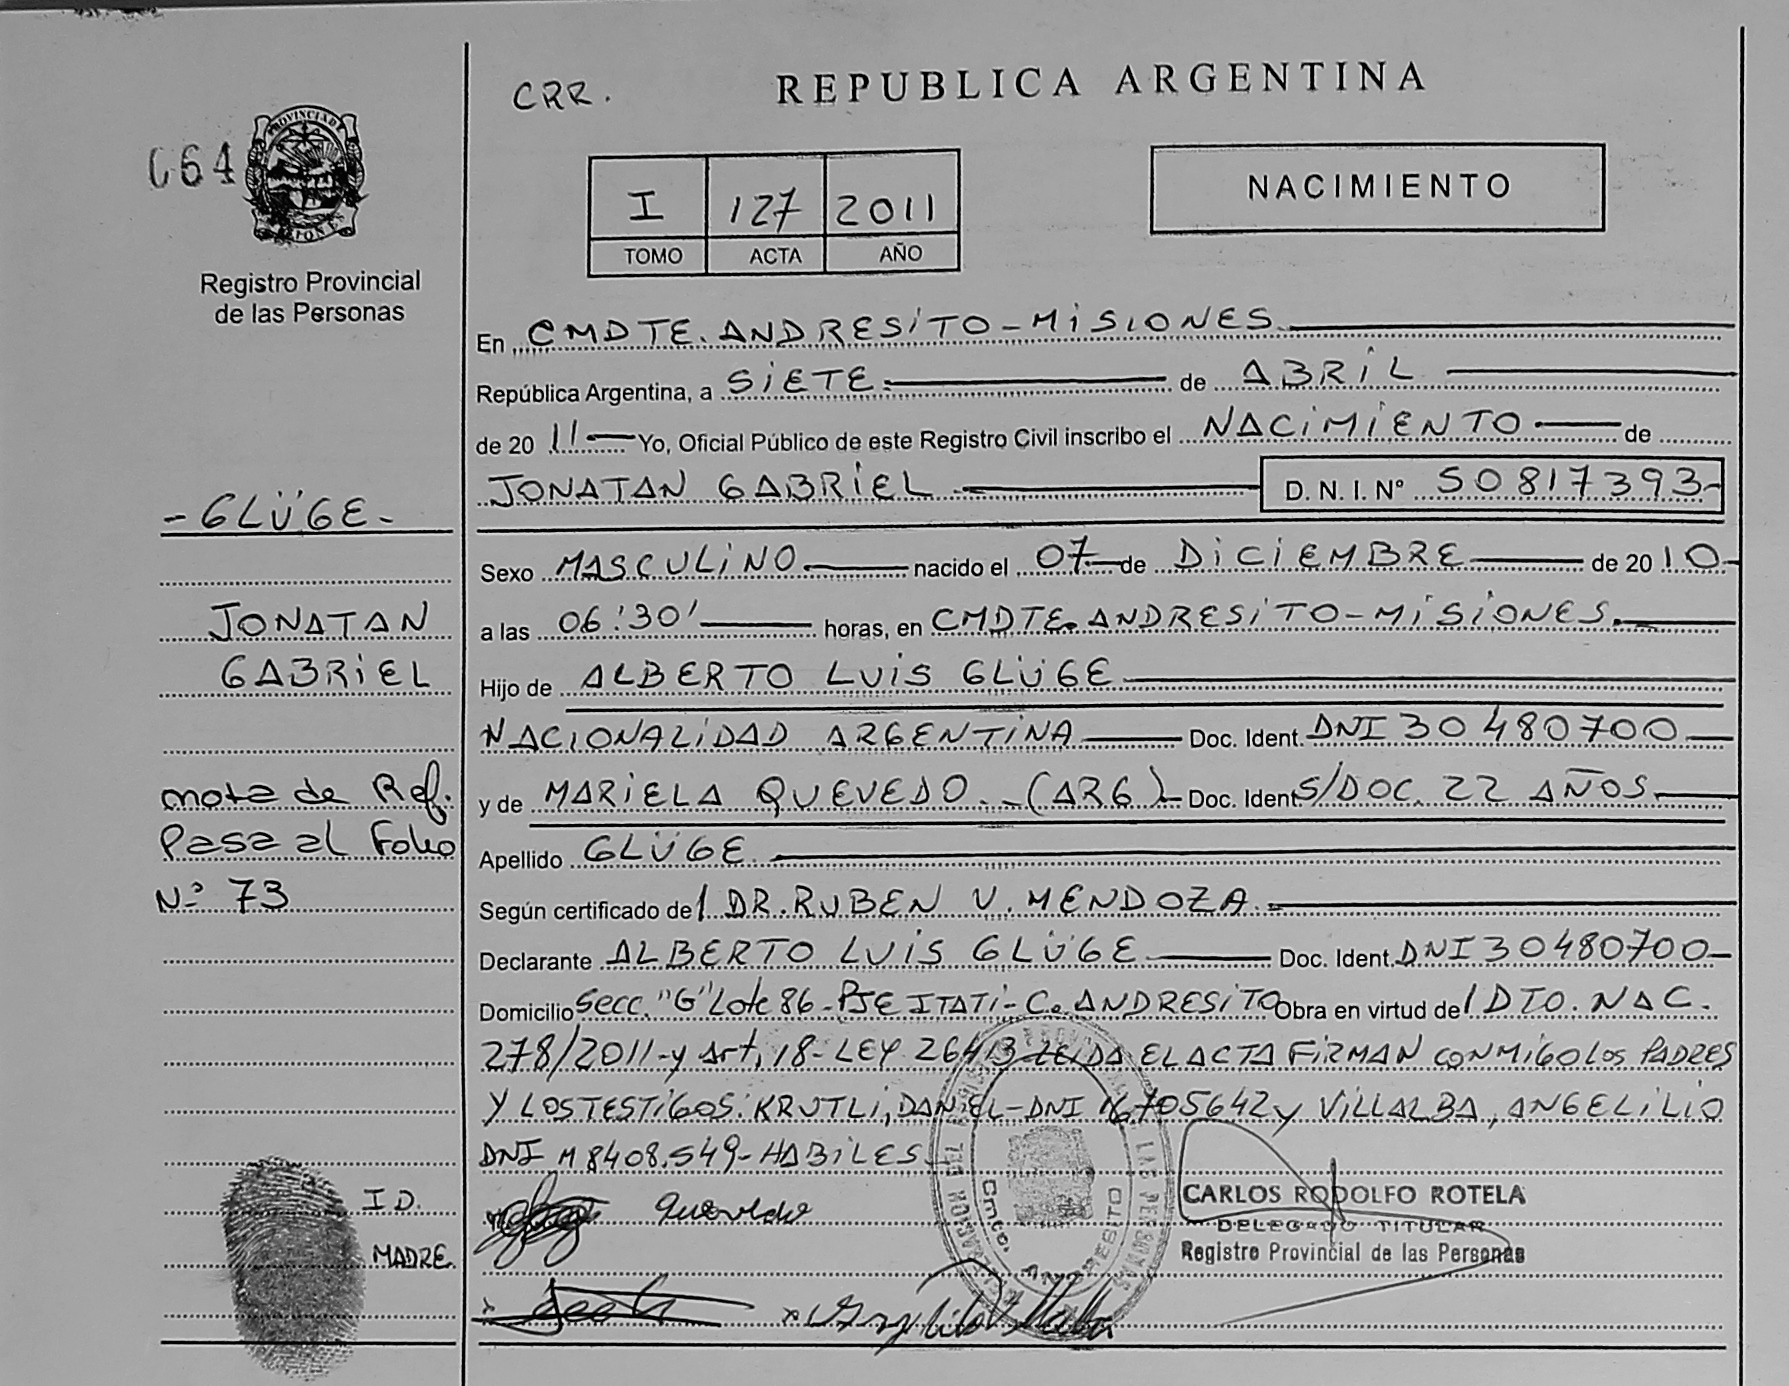 CRR.
REPUBLICA ARGENTINA
064
I 127 2011
TOMO ACTA AÑO
NACIMIENTO
Registro Provincial
de las Personas
- GLÜGE -
JONATAN
GABRIEL
nota de Ref.
Pasa al Folio
Nº 73
I D.
MADRE.
En CMDTE. ANDRESITO - MISIONES
República Argentina, a SIETE de ABRIL
de 20 11 Yo, Oficial Público de este Registro Civil inscribo el NACIMIENTO de
JONATAN GABRIEL D. N. I. Nº 50817393-
Sexo MASCULINO nacido el 07 de DICIEMBRE de 20 10-
a las 06:30' horas, en CMDTE. ANDRESITO - MISIONES.
Hijo de ALBERTO LUIS GLÜGE
NACIONALIDAD ARGENTINA Doc. Ident. DNI 30480700
y de MARIELA QUEVEDO. - (ARG) Doc. Ident S/DOC. 22 AÑOS
Apellido GLÜGE
Según certificado del DR. RUBEN V. MENDOZA
Declarante ALBERTO LUIS GLÜGE Doc. Ident. DNI 30480700-
Domicilio Secc. "G" Lote 86 - PJE ITATI - C. ANDRESITO Obra en virtud del DTO. NAC.
278/2011 - y Art. 18 - LEY 26413 LEIDA EL ACTA FIRMAN CONMIGO LOS PADRES
Y LOS TESTIGOS: KRUTLI, DANIEL - DNI 16.705642 y VILLALBA, ANGELILIO
DNI M 8408.549 - HABILES
Quevedo
CARLOS RODOLFO ROTELA
DELEGADO TITULAR
Registro Provincial de las Personas